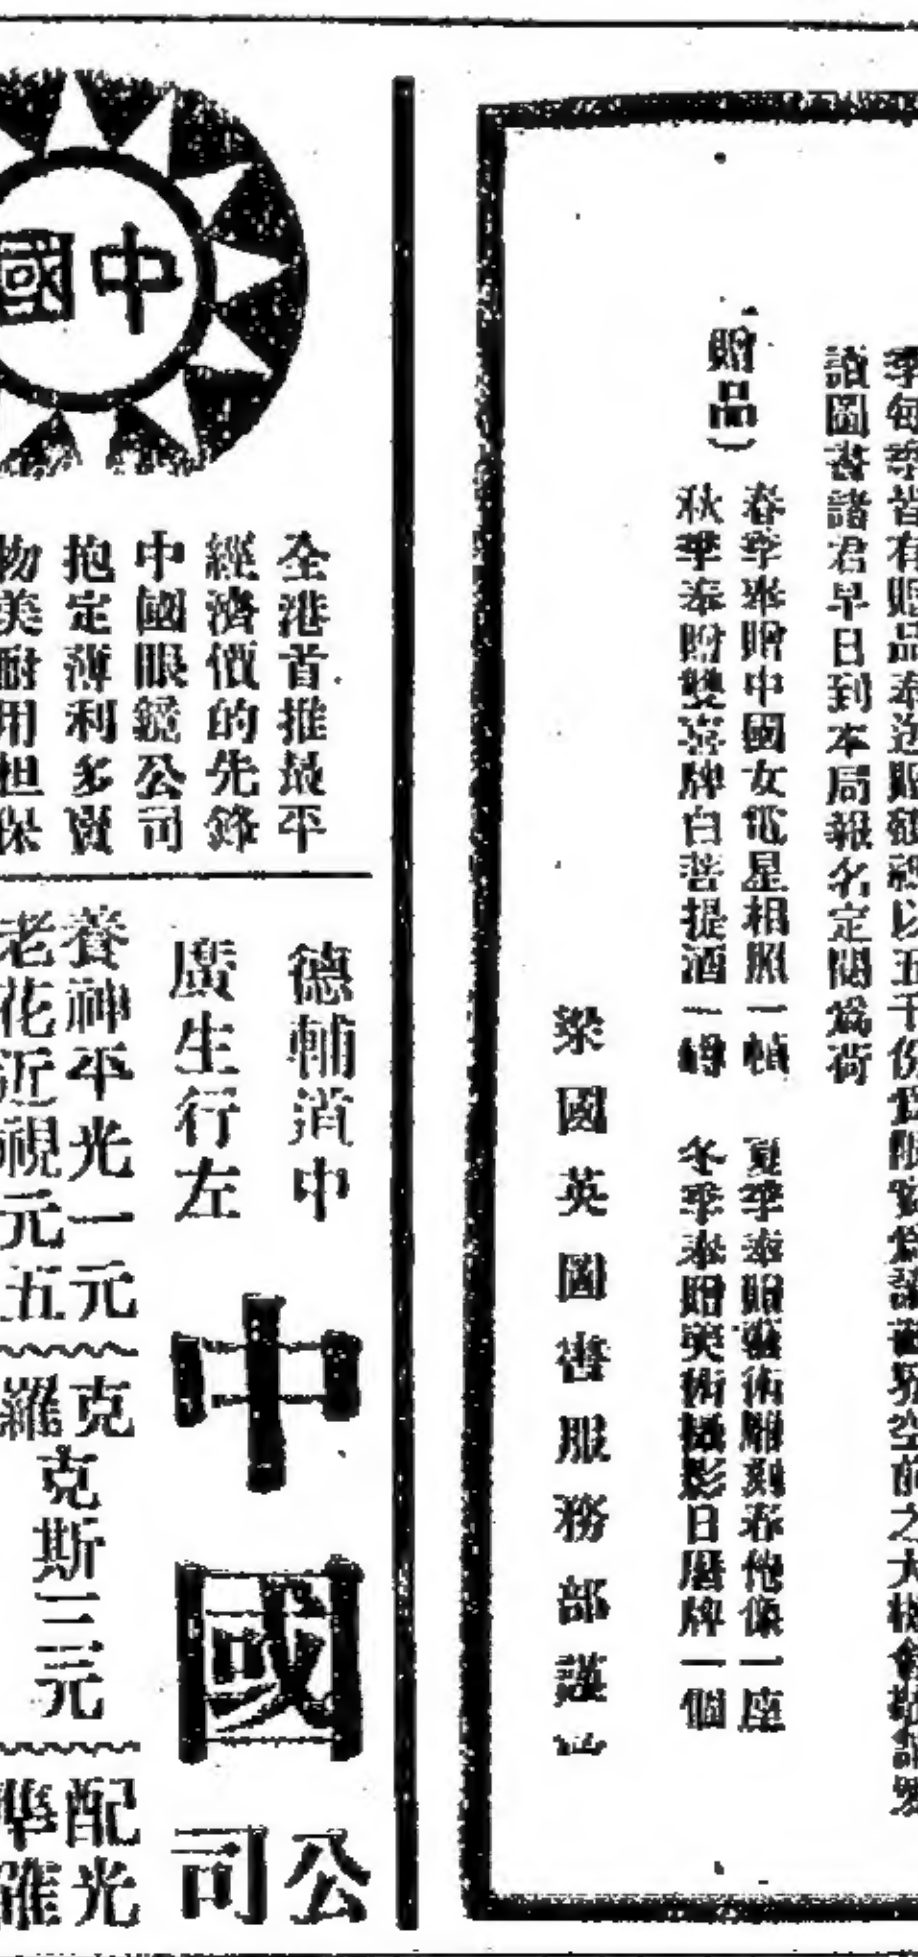 季每季皆有贈品奉送贈額祇以五千份為限實為讀書界空前之大機會敬請愛
讀圖書諸君早日到本局報名定閱為荷
(贈品)
春季奉贈中國女電星相照一幀 夏季奉贈藝術雕刻春他像一座
秋季奉贈雙喜牌白菩提酒一樽 冬季奉贈美術攝影日曆牌一個
梁國英圖書服務部謹
中國
全港首推最平
經濟價的先鋒
中國眼鏡公司
抱定薄利多賣
物美耐用担保
德輔道中
廣生行左
中國公司
養神平光一元
老花近視元五
克羅克斯三元
配光準確